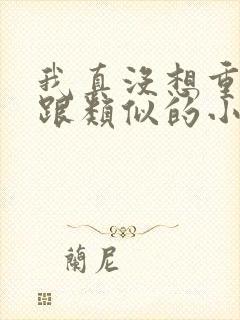 我真没想重
跟類似的小
蘭尼